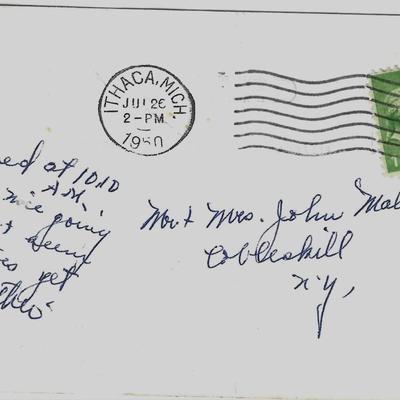 ITHACA, MICH
JUL 26
2-PM
1950
at 1010
A.M.
nice going
seem
yet
Mr & Mrs. John
Cobleskill
N.Y.